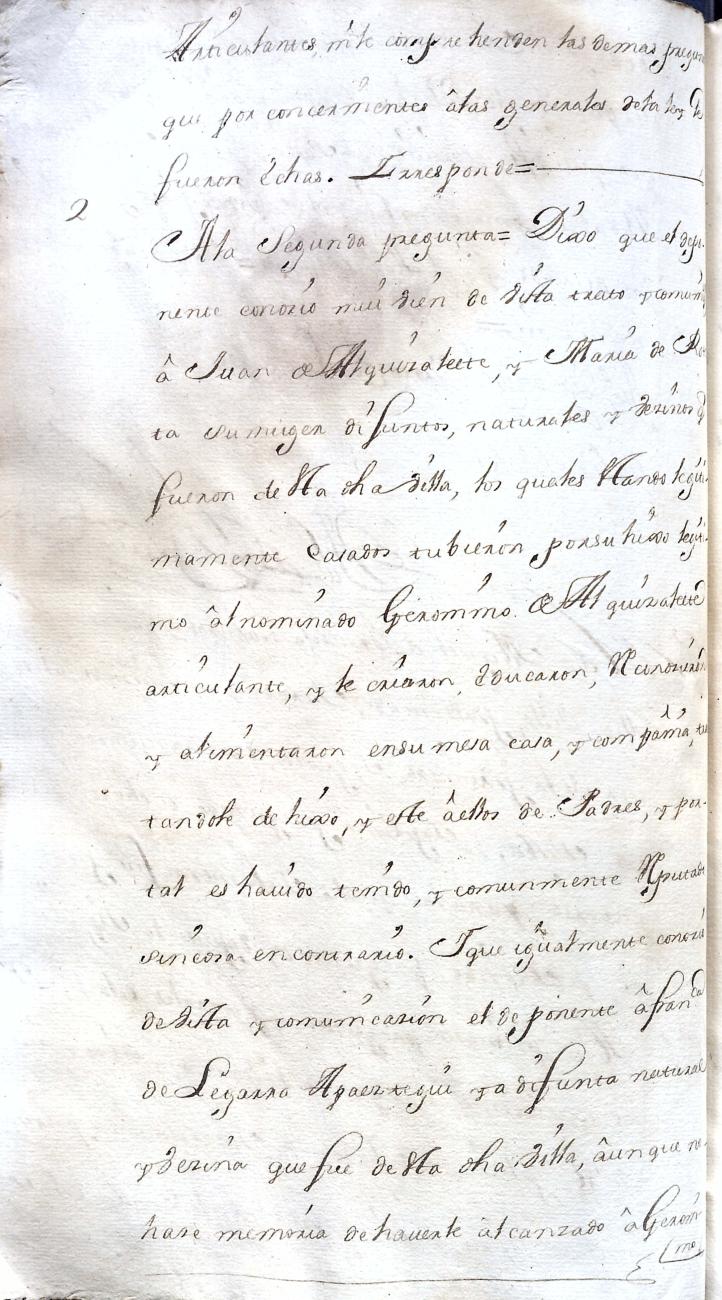 Articulantes, ni le comprehenden las demas pregun
que por concernientes â las generales de la ley le
fueron èchas. I responde=
2
A la Segunda pregunta= Dixo que el depo
nente conozio mui vien de vista trato y comuni
â Juan de Alquizalette, y Maria de
ta su muger difuntos, naturales y vezinos q
fueron de esta dha villa, los quales estando legiti
mamente casados tubieron por su hixo legiti
mo âl nominado Geronimo de Alquizalette
articulante, y le criaron, educaron, reconozieron
y alimentaron en su mesa casa, y compañia, tra
tandole de hixo, y este â ellos de Padres, y por
tal es havido tenido, y comunmente reputado
sin cosa en contrario. I que igualmente conozio
de vista y comunicazion el deponente â Franca
de Legarra Apaeztegui ya difunta natural
y vezina que fue de esta dha villa, âunque no
haze memoria de haverle alcanzado â Geroni
mo